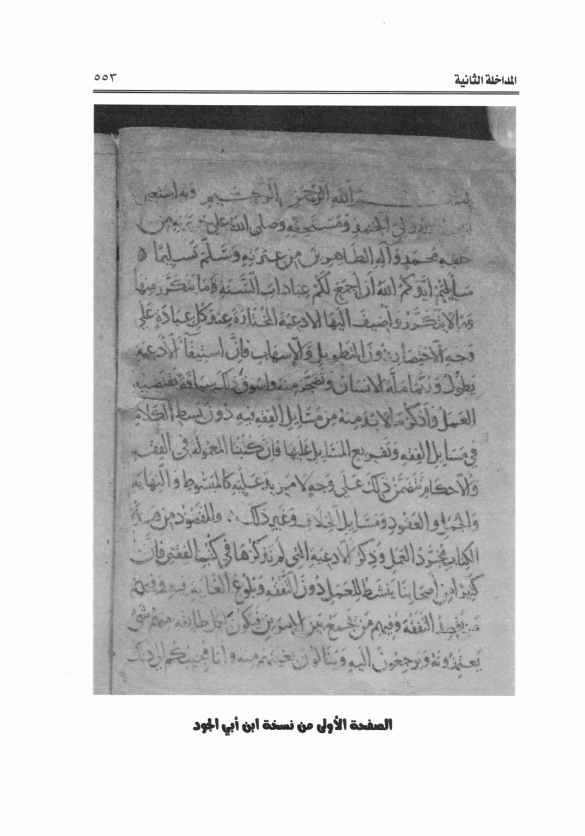 المداخلة الثانية ٥٥٣
بسم الله الرحمن الرحيم وبه استعين
لله ولي الحمد ومستحقه وصلى الله على خيرته من
خلقه محمد وآله الطاهرين من عترته وسلم تسليما
سألتم ايدكم الله ان اجمع لكم عبادات السنة ما يتكرر منها
وما لا يتكرر واضيف اليها الادعية المختارة عند كل عبادة على
وجه الاختصار دون التطويل والاسهاب فان استيفاء الادعية
يطول وربما مله الانسان وتضجر منه واسوق ذلك سياقة يقتضيه
العمل واذكر ما لابد منه من مسايل الفقه فيه دون بسط الكلام
في مسايل الفقه وتفريع المسايل عليها فان كتبنا المعمولة في الفقه
والاحكام تتضمن ذلك على وجه لا مزيد عليه كالمبسوط والنهاية
والجمل والعقود ومسايل الخلاف وغير ذلك والمقصود من هذا
الكتاب مجرد العمل وذكر الادعية التي لم نذكرها في كتب الفقه فان
كثيرا من اصحابنا ينشط للعمل دون التفقه وبلوغ الغاية فيه وفيهم
من يقصد التفقه وفيهم من يجمع بين الامرين فيكون لكل طايفة منهم شي
يعتمدونه ويرجعون اليه وينالون بغيتهم منه وانا مجيبكم الى ذلك
الصفحة الأولى من نسخة ابن أبي الجود